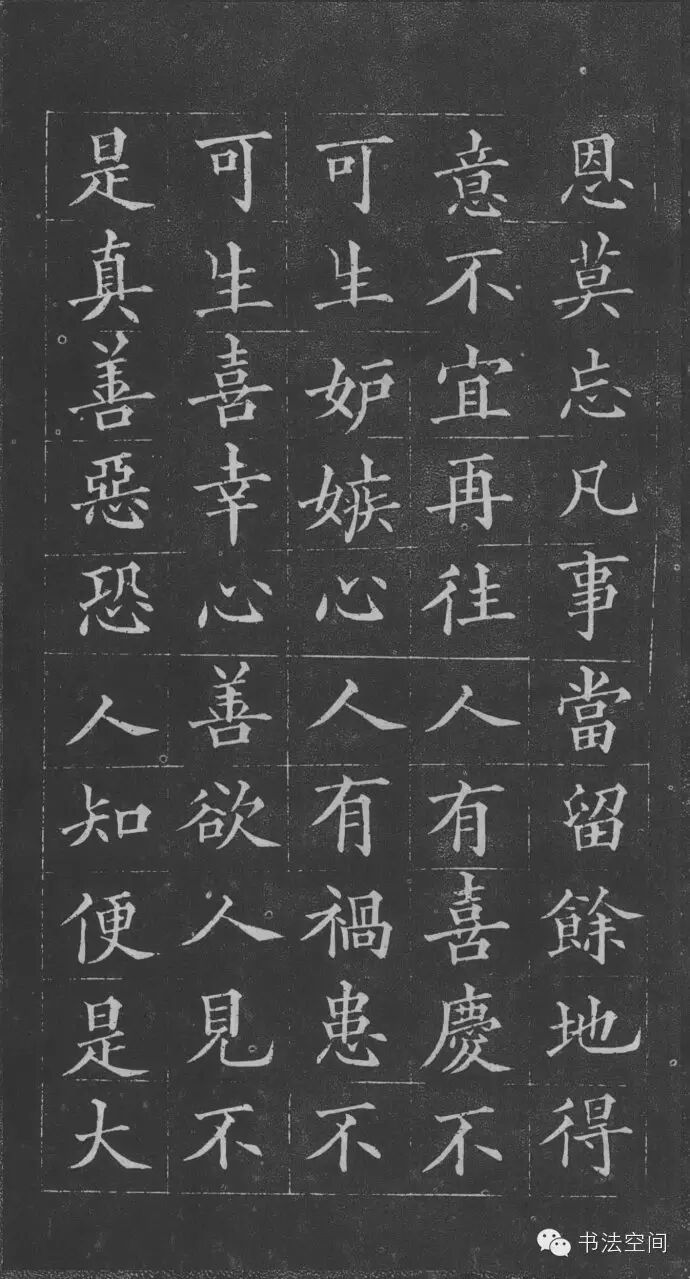 恩莫忘凡事當留餘地得
意不宜再往人有喜慶不
可生妒嫉心人有禍患不
可生喜幸心善欲人見不
是真善惡恐人知便是大
书法空间